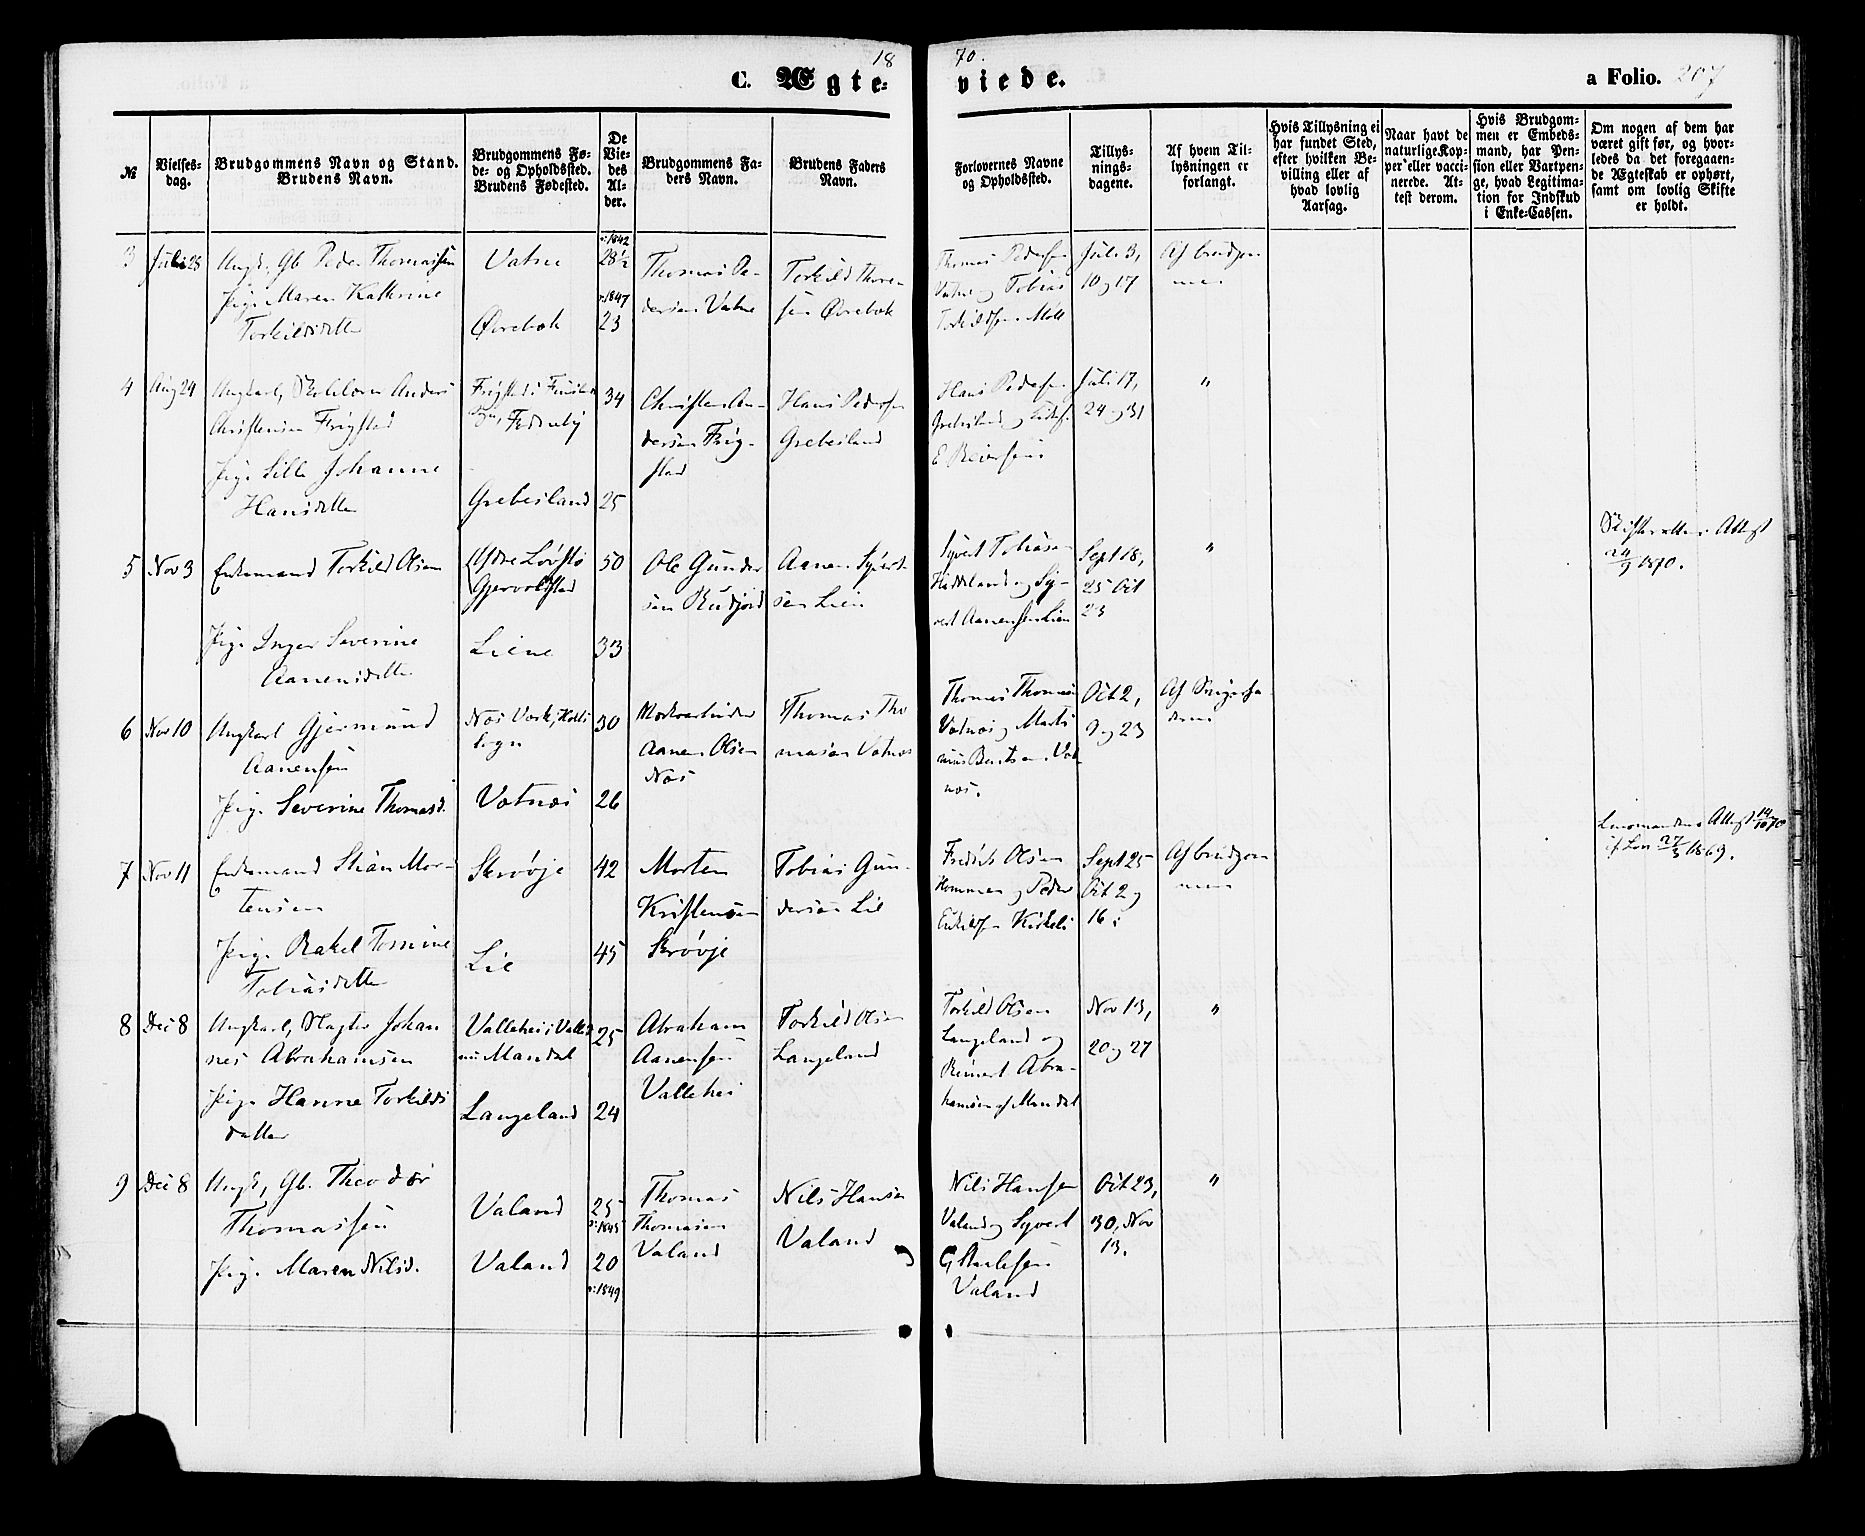 1870.
C. Ægteviede.
a Folio. 207
№
Vielsesdag.
Brudgommens Navn og Stand.
Brudens Navn.
Brudgommens Føde- og Opholdssted.
Brudens Fødested.
De Viedes Alder.
Brudgommens Faders Navn.
Brudens Faders Navn.
Forlovernes Navne og Opholdssted.
Tillysningsdagene.
Af hvem Tillysningen er forlangt.
Hvis Tillysning ei har fundet Sted, efter hvilken Bevilling eller af hvad lovlig Aarsag.
Naar havt de naturlige Kopper eller vaccinerede. Attest derom.
Hvis Brudgommen er Embedsmand, har Pension eller Vartpenge, hvad Legitimation for Indskud i Enke-Cassen.
Om nogen af dem har været gift før, og hvorledes da det foregaaende Ægteskab er ophørt, samt om lovlig Skifte er holdt.
3 Juli 28 Ungk. Gb. Peder Thomassen
Pige Maren Kathrine
Torkildsdatter
Vatne
Øvrebøk
1842
28½
1847
23
Thomas Pedersen Vatne
Torkild Thoresen Øvrebøk
Thomas Pedersen
Vatne og Tobias
Torkildsen Møll
Juli 3,
10 og 17
Af brudgommen
4 Aug 24 Ungkarl, Skolelærer Anders
Christensen Frigstad
Pige Sille Johanne
Hansdatter
Frigstad i
Grebesland
34
25
Christen Andersen Frigstad
Hans Pedersen
Grebesland
Hans Pedersen
Grebesland og
E Reiersen
Juli 17,
24 og 31
"
5 Nov 3 Enkemand Torkild Olsen
Pige Inger Severine
Aanensdatter
Ydre Løvstø
Gjervoldstad
Liene
50
33
Ole Gundersen Rudjord
Aanen Syvertsen Lien
Syvert Tobiasen
Haddeland og Syvert Aanensen Lien
Sept 18,
25 Oct
23
"
Skifterettens Attest
24/9 1870.
6 Nov 10 Ungkarl Gjermund
Aanensen
Pige Severine Thomasd.
Næs Værk, Holts
Sogn
Vatnøs
30
26
Aanen Olsen
Næs
Thomas Thomasen Vatnøs
Thomas Thomasen
Vatnøs og Martinius Bentsen Vatnøs.
Oct 2,
9 og 23
Af
7 Nov 11 Enkemand Stian Mortensen
Pige Rakel Tomine
Tobiasdatter
Skrøvje
Lie
42
45
Morten
Kristensen
Skrøvje
Tobias Gundersen Lie
Fredrik Olsen
Hommen og Peder
Eriksen Kirkeli
Sept 25
Oct 2 og
16.
Af brudgommen
Lensmandens Attest 14/10 70
if. Lov 27/3 1869.
8 Dec 8 Ungkarl, Slagter Johannes Abrahamsen
Pige Hanne Torkildsdatter
Vallehei i Valle
Mandal
Langeland
25
24
Abraham
Aanensen
Vallehei
Torkild Olsen
Langeland
Torkild Olsen
Langeland og
Reinert Abrahamsen af Mandal
Nov 13,
20 og 27
"
9 Dec 8 Ungk, Gb. Theodor
Thomassen
Pige Maren Nilsd.
Valand
Valand
25
1845
20
1849
Thomas
Thomasen
Valand
Nils Hansen
Valand
Nils Hansen
Valand og Syvert
G
Valand
Oct 23,
30, Nov
13.
"